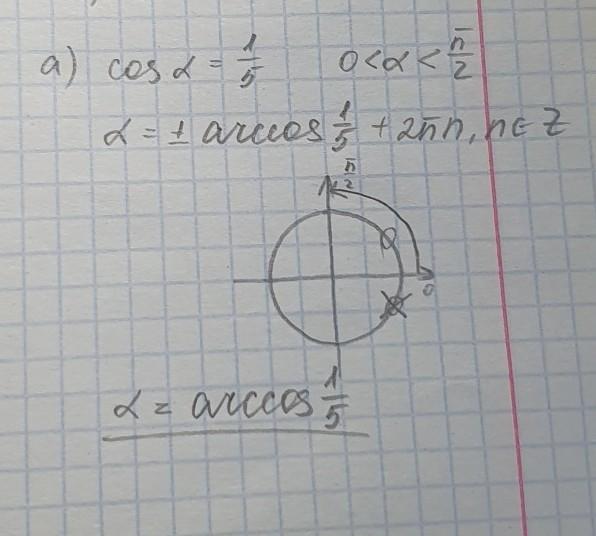 а) cos α = 1/5 0 < α < π/2
α = ± arccos 1/5 + 2πn, n ∈ Z
π/2
0
α = arccos 1/5